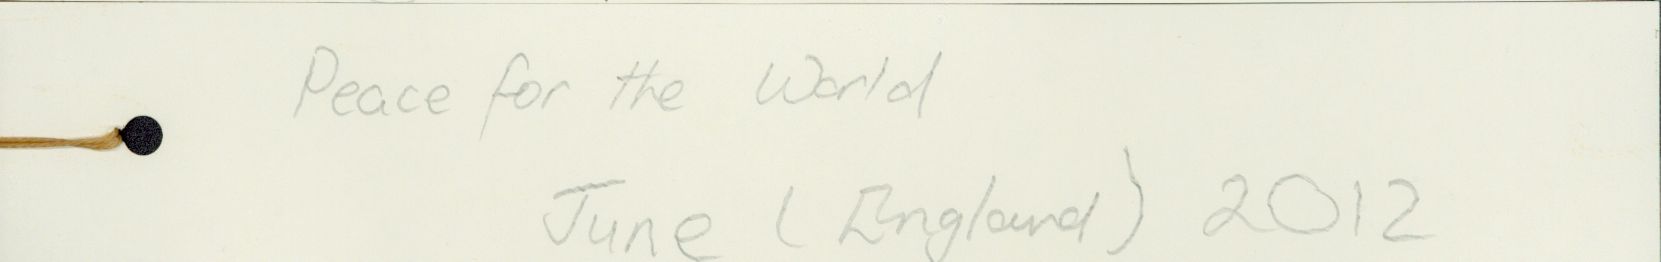 Peace for the World
June (England) 2012